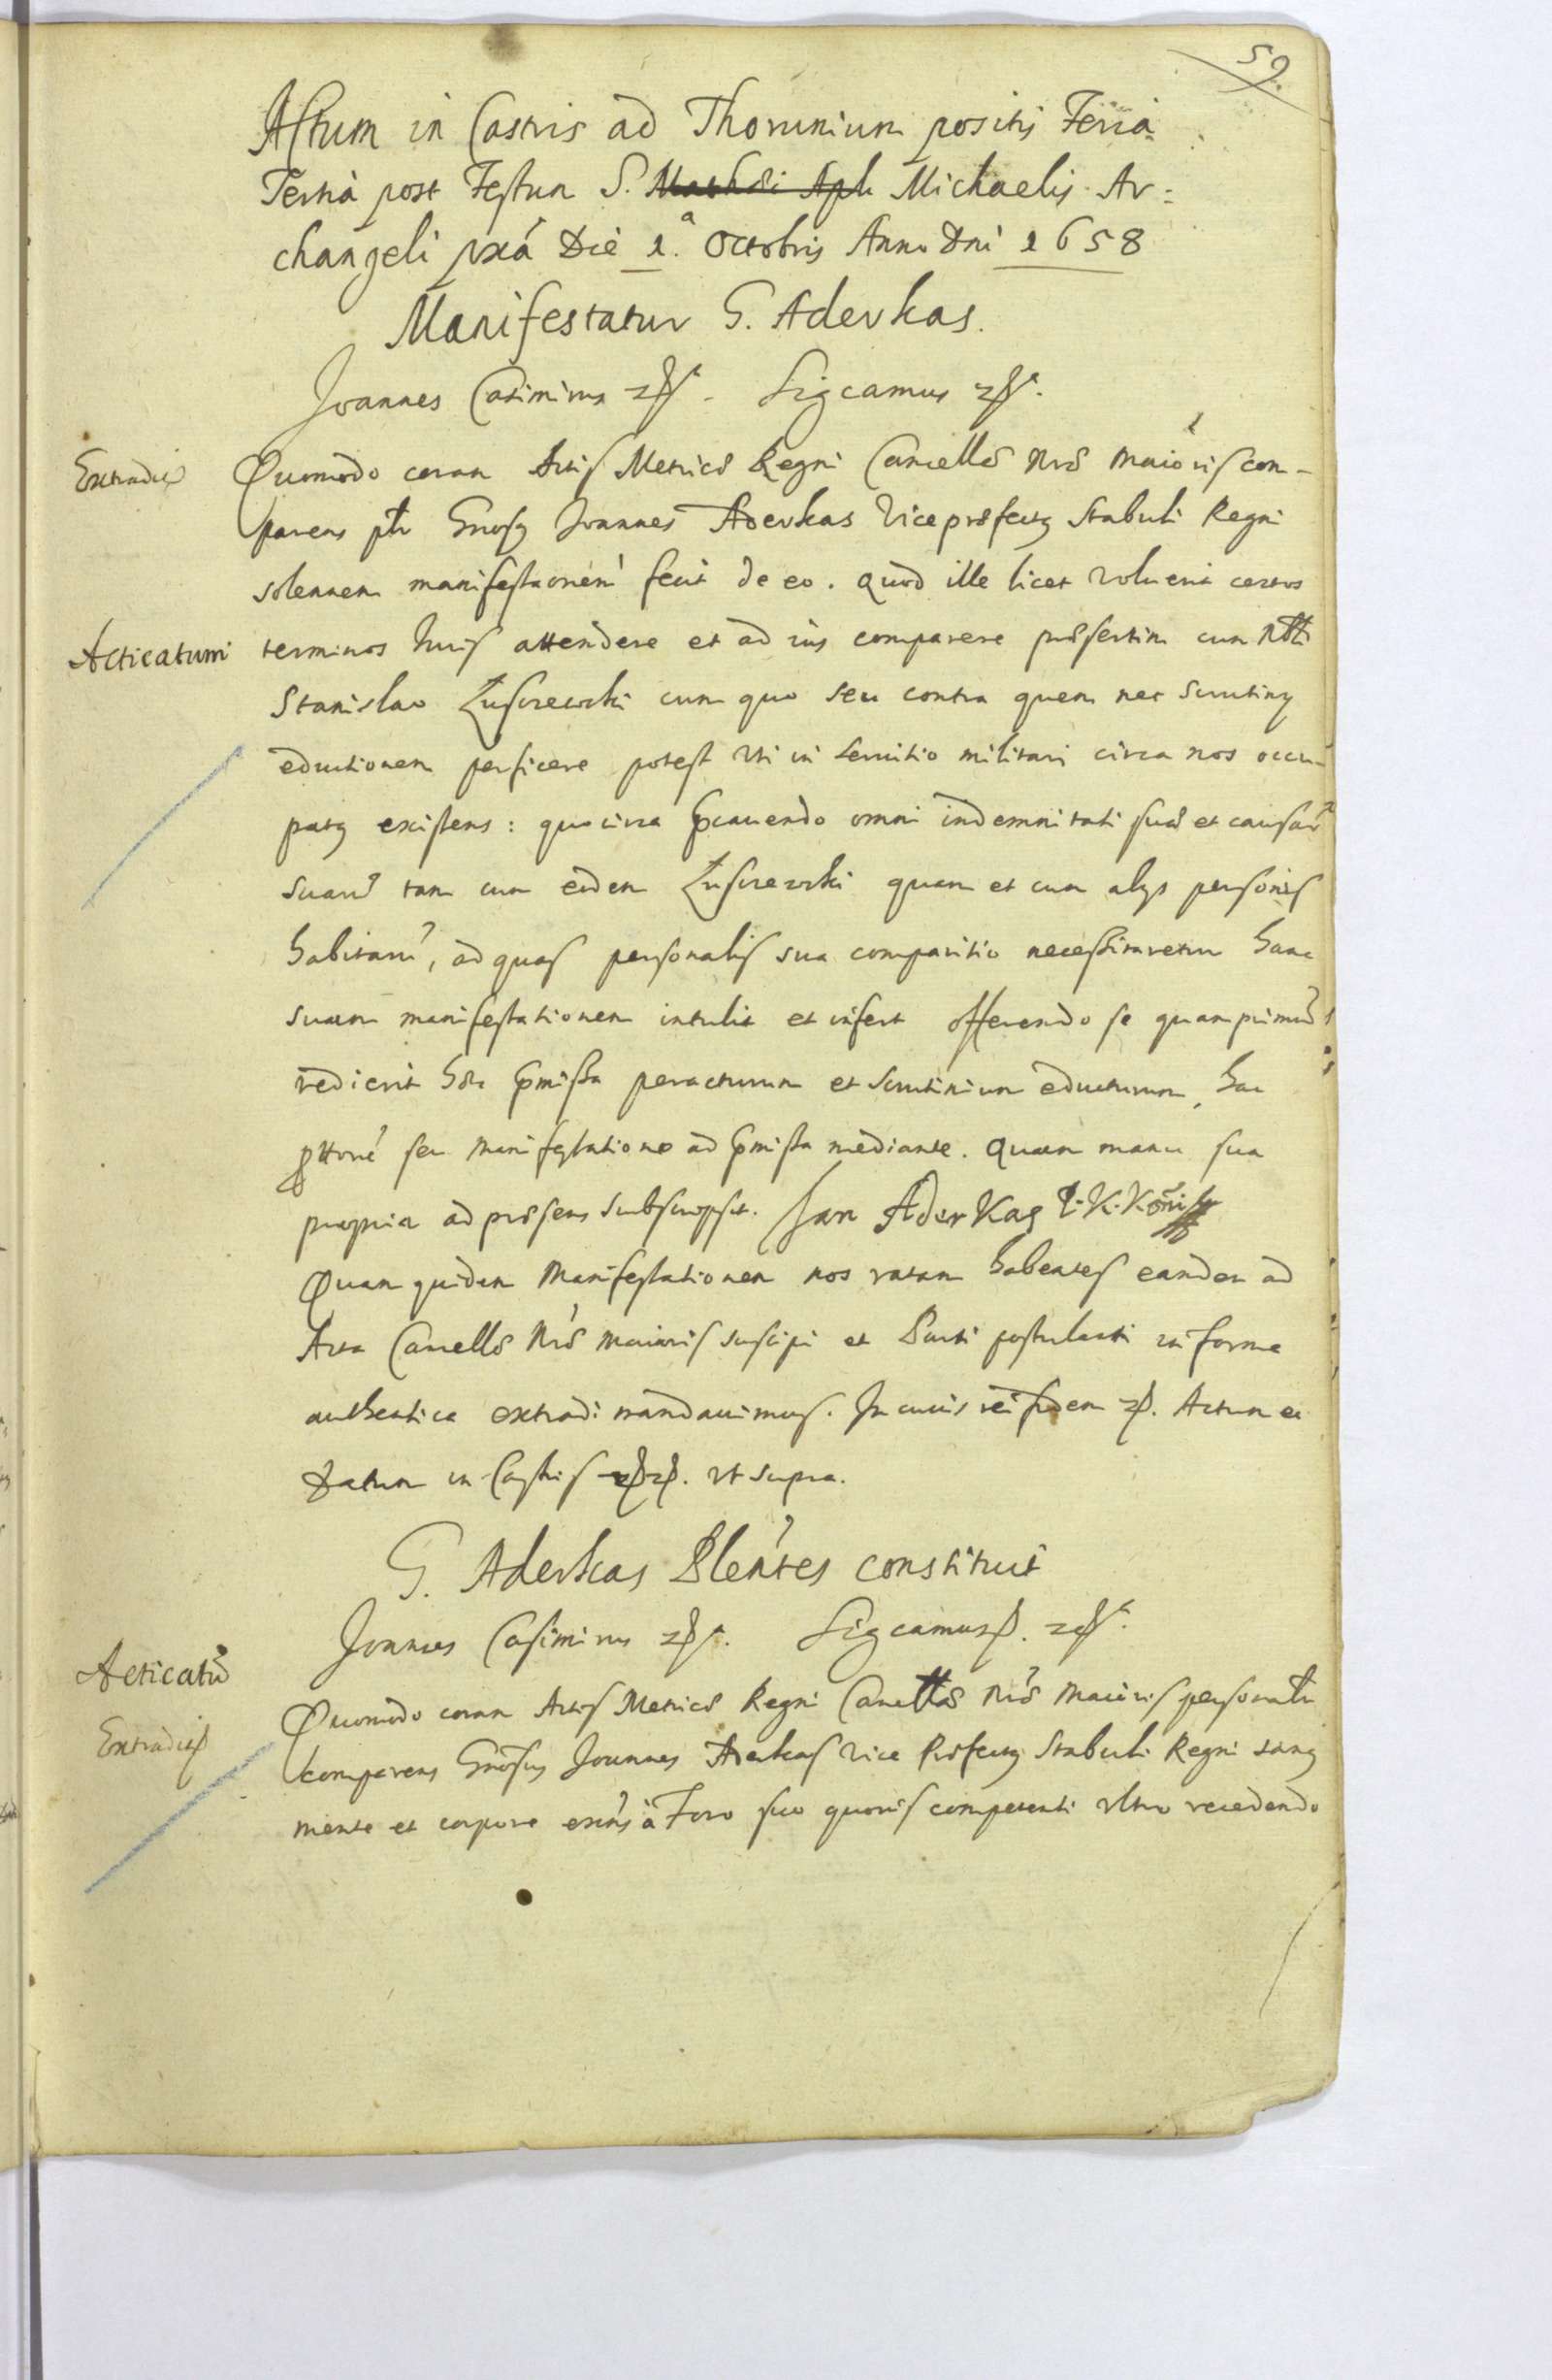 59.
Actum in Castris ad Thorunium positis Feria
Tertia post Festum S. Mathæi Apli Michaelis Ar=
changeli pxá Die 1.a Octobris Anno Dni 1658
Manifestatur G. Aderkas.
Joannes Casimirus Sigcamus
Extradit
Quomodo coram Actis Metricæ Regni Cancellæ nræ maioris com-
parens ptr Gnosq Joannes Aderkas Vicepræfectq Stabuli Regni
solennem manifestaonem fecit de eo. Quod ille licet voluerit certos
Acticatum
terminos Iuris attendere et ad ius comparere præsertim cum Nbli
Stanislao Łuszczewski cum quo seu contra quem nec scrutiny
eductionem perficere potest uti in servitio militari circa nos occu-
patq existens: quocirca præcavendo omni indemnitati suæ et causar
suarũ tam cum eodem Łuszczewski quam et cum alys personis
habitarũ, ad quas personalis sua comparitio necessitaretur hanc
suam manifestationem intulit et infert offerendo se quamprimũ
redierit hæc præmissa peracturum et scrutinium educturum, hac
prttoné seu manifestatione ad præmissa mediante. Quam manu sua
propria ad præsens subscripsit. Jan Aderkas K. Koni
Quam quidem Manifestationem nos ratam habentes eandem ad
Acta Cancellæ Nræ maioris suscipi et Parti postulanti in forma
authentica extradi mandavimus. In cuius rei fidem Actum et
Datum in Castris ut supra.
G. Aderkas Plentes constituit
Joannes Casimirus Sigcamus
Acticatũ
Quomodo coram Actis Metricæ Regni Cancellæ Nræ Maioris personalr
Extradit
comparens Gnosus Joannes Aderkas Vice Præfectq Stabuli Regni sanq
mente et corpore exñs à Foro suo quovis competenti ultro recedendo